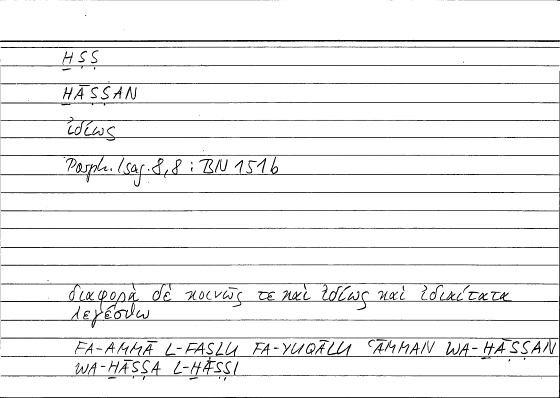 ḪṢṢ
ḪĀṢṢAN
ἰδίως
Porph. Isag. 8,8 : BN 151b
διαφορὰ δὲ κοινῶς τε καὶ ἰδίως καὶ ἰδιαίτατα
λεγέσθω
FA-AMMĀ L-FAṢLU FA-YUQĀLU ʿĀMMAN WA-ḪĀṢṢAN
WA-ḪĀṢṢA L-ḪĀṢṢI